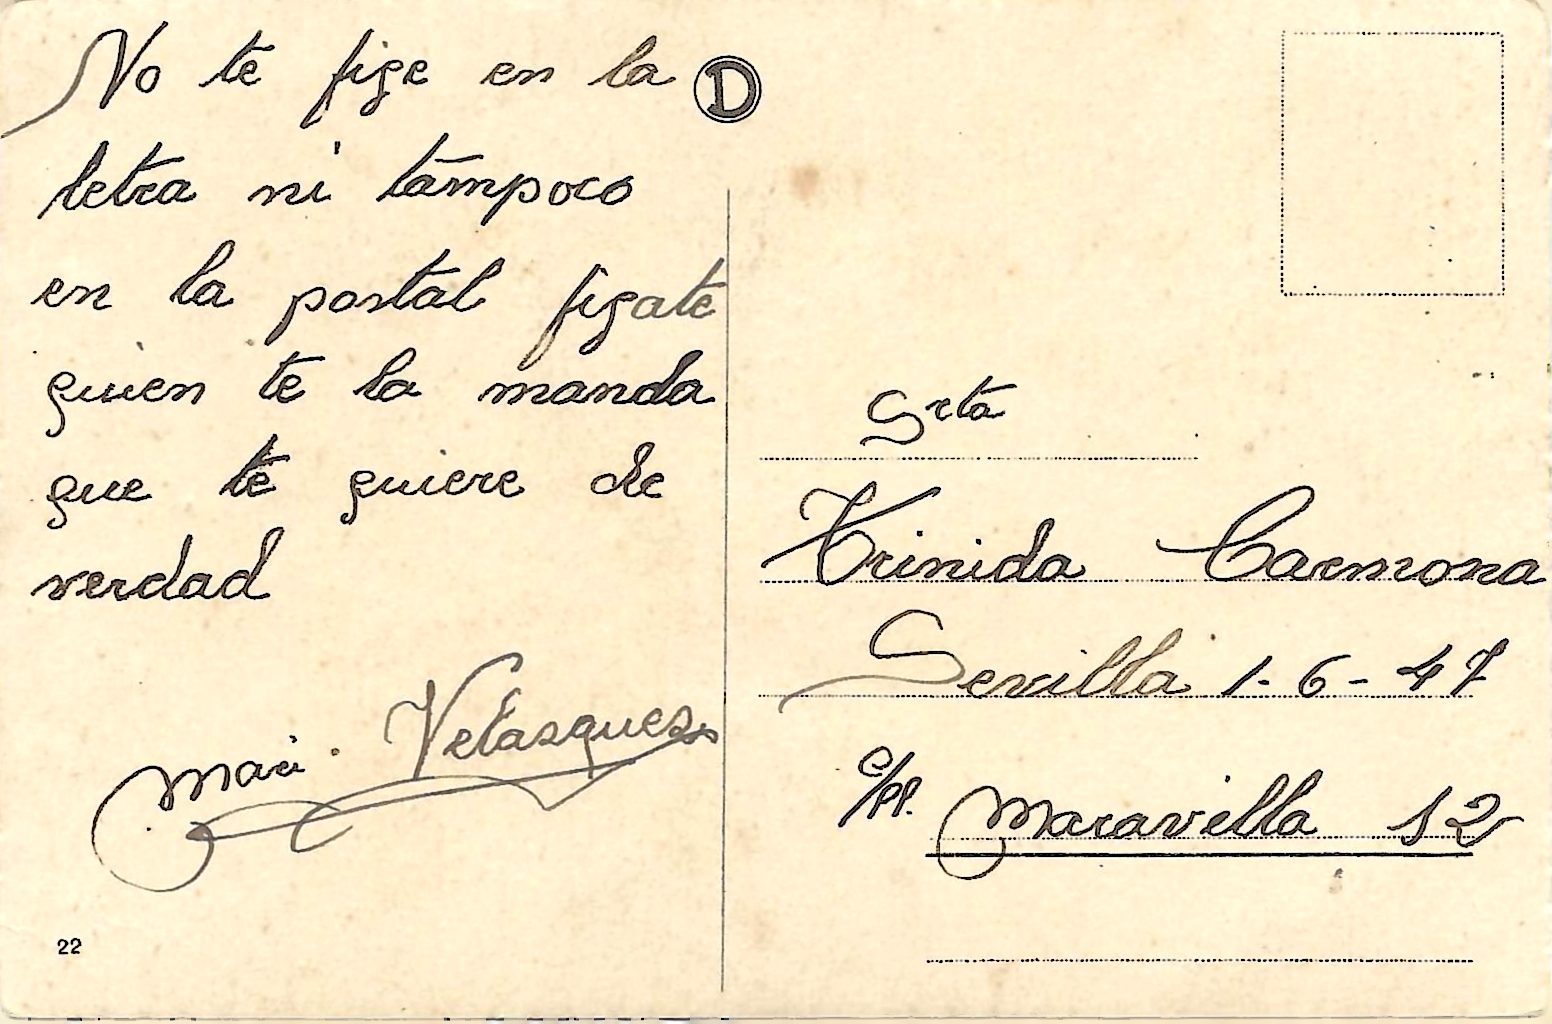 No te fige en la
letra ni tampoco
en la postal figate
quien te la manda
que te quiere de
verdad
Mari Velasques
22
D
Srta
Trinida Carmona
Sevilla 1-6-47
Maravilla 12